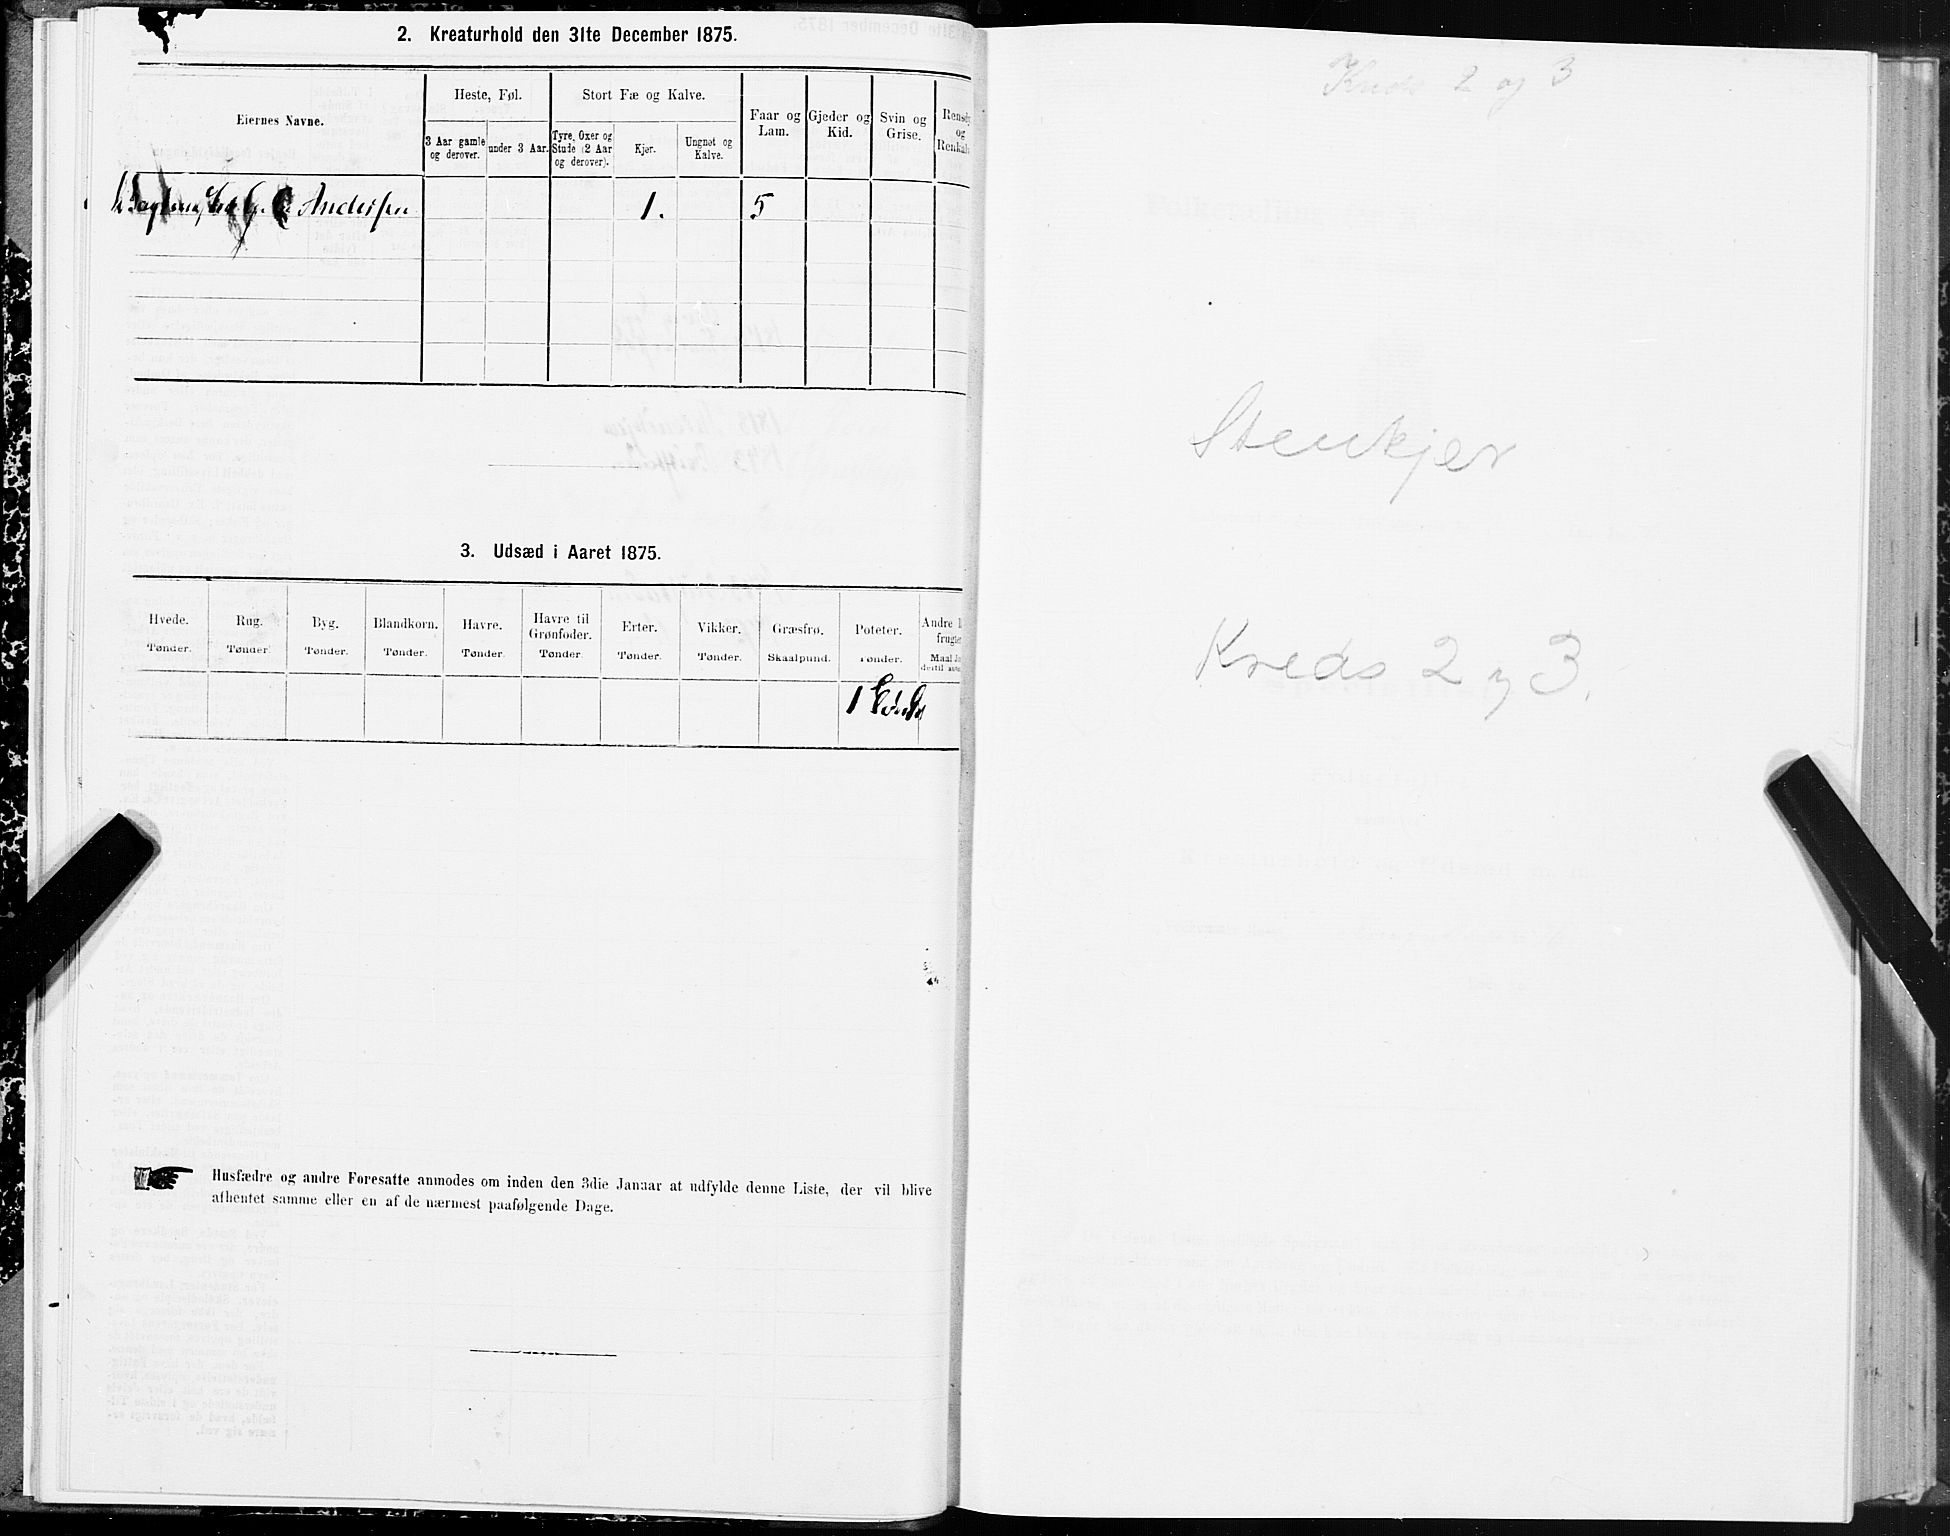 2. Kreaturhold den 31te December 1875.
Eiernes Navne.
Heste, Føl.
Stort Fæ og Kalve.
Faar og Lam.
Gjeder og Kid.
Svin og Grise.
Rensdy
og
Renkalv
3 Aar gamle og derover.
under 3 Aar.
Tyre, Oxer og Stude (2 Aar og derover).
Kjør.
Ungnøt og Kalve.
Andersen 1. 5
3. Udsæd i Aaret 1875.
Hvede. Rug. Byg. Blandkorn. Havre. Havre til Grønfoder. Erter. Vikker. Græsfrø. Poteter. Andre
frugter
Tønder. Tønder. Tønder. Tønder. Tønder. Tønder. Tønder. Tønder. Skaalpund. Tønder. Maal
1 Tønde
Husfædre og andre Foresatte anmodes om inden den 3die Januar at udfylde denne Liste, der vil blive
afhentet samme eller en af de nærmest paafølgende Dage.
Kreds 2 og 3
Stenkjer
Kreds 2 og 3.